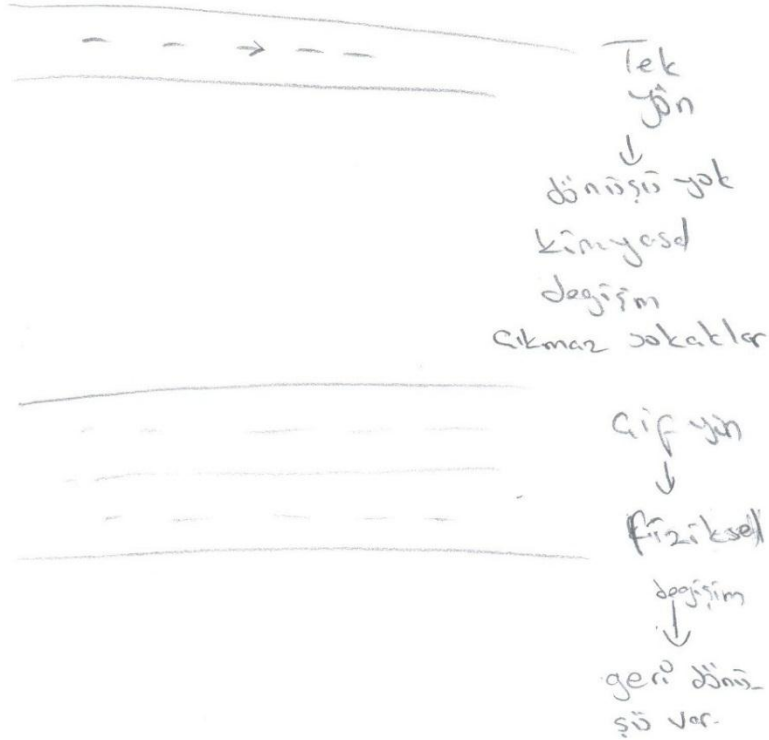 Tek
yön
↓
dönüşü yok
kimyasal
değişim
Çıkmaz sokaklar
Çif yön
↓
fiziksel
değişim
↓
geri dönü-
şü var.